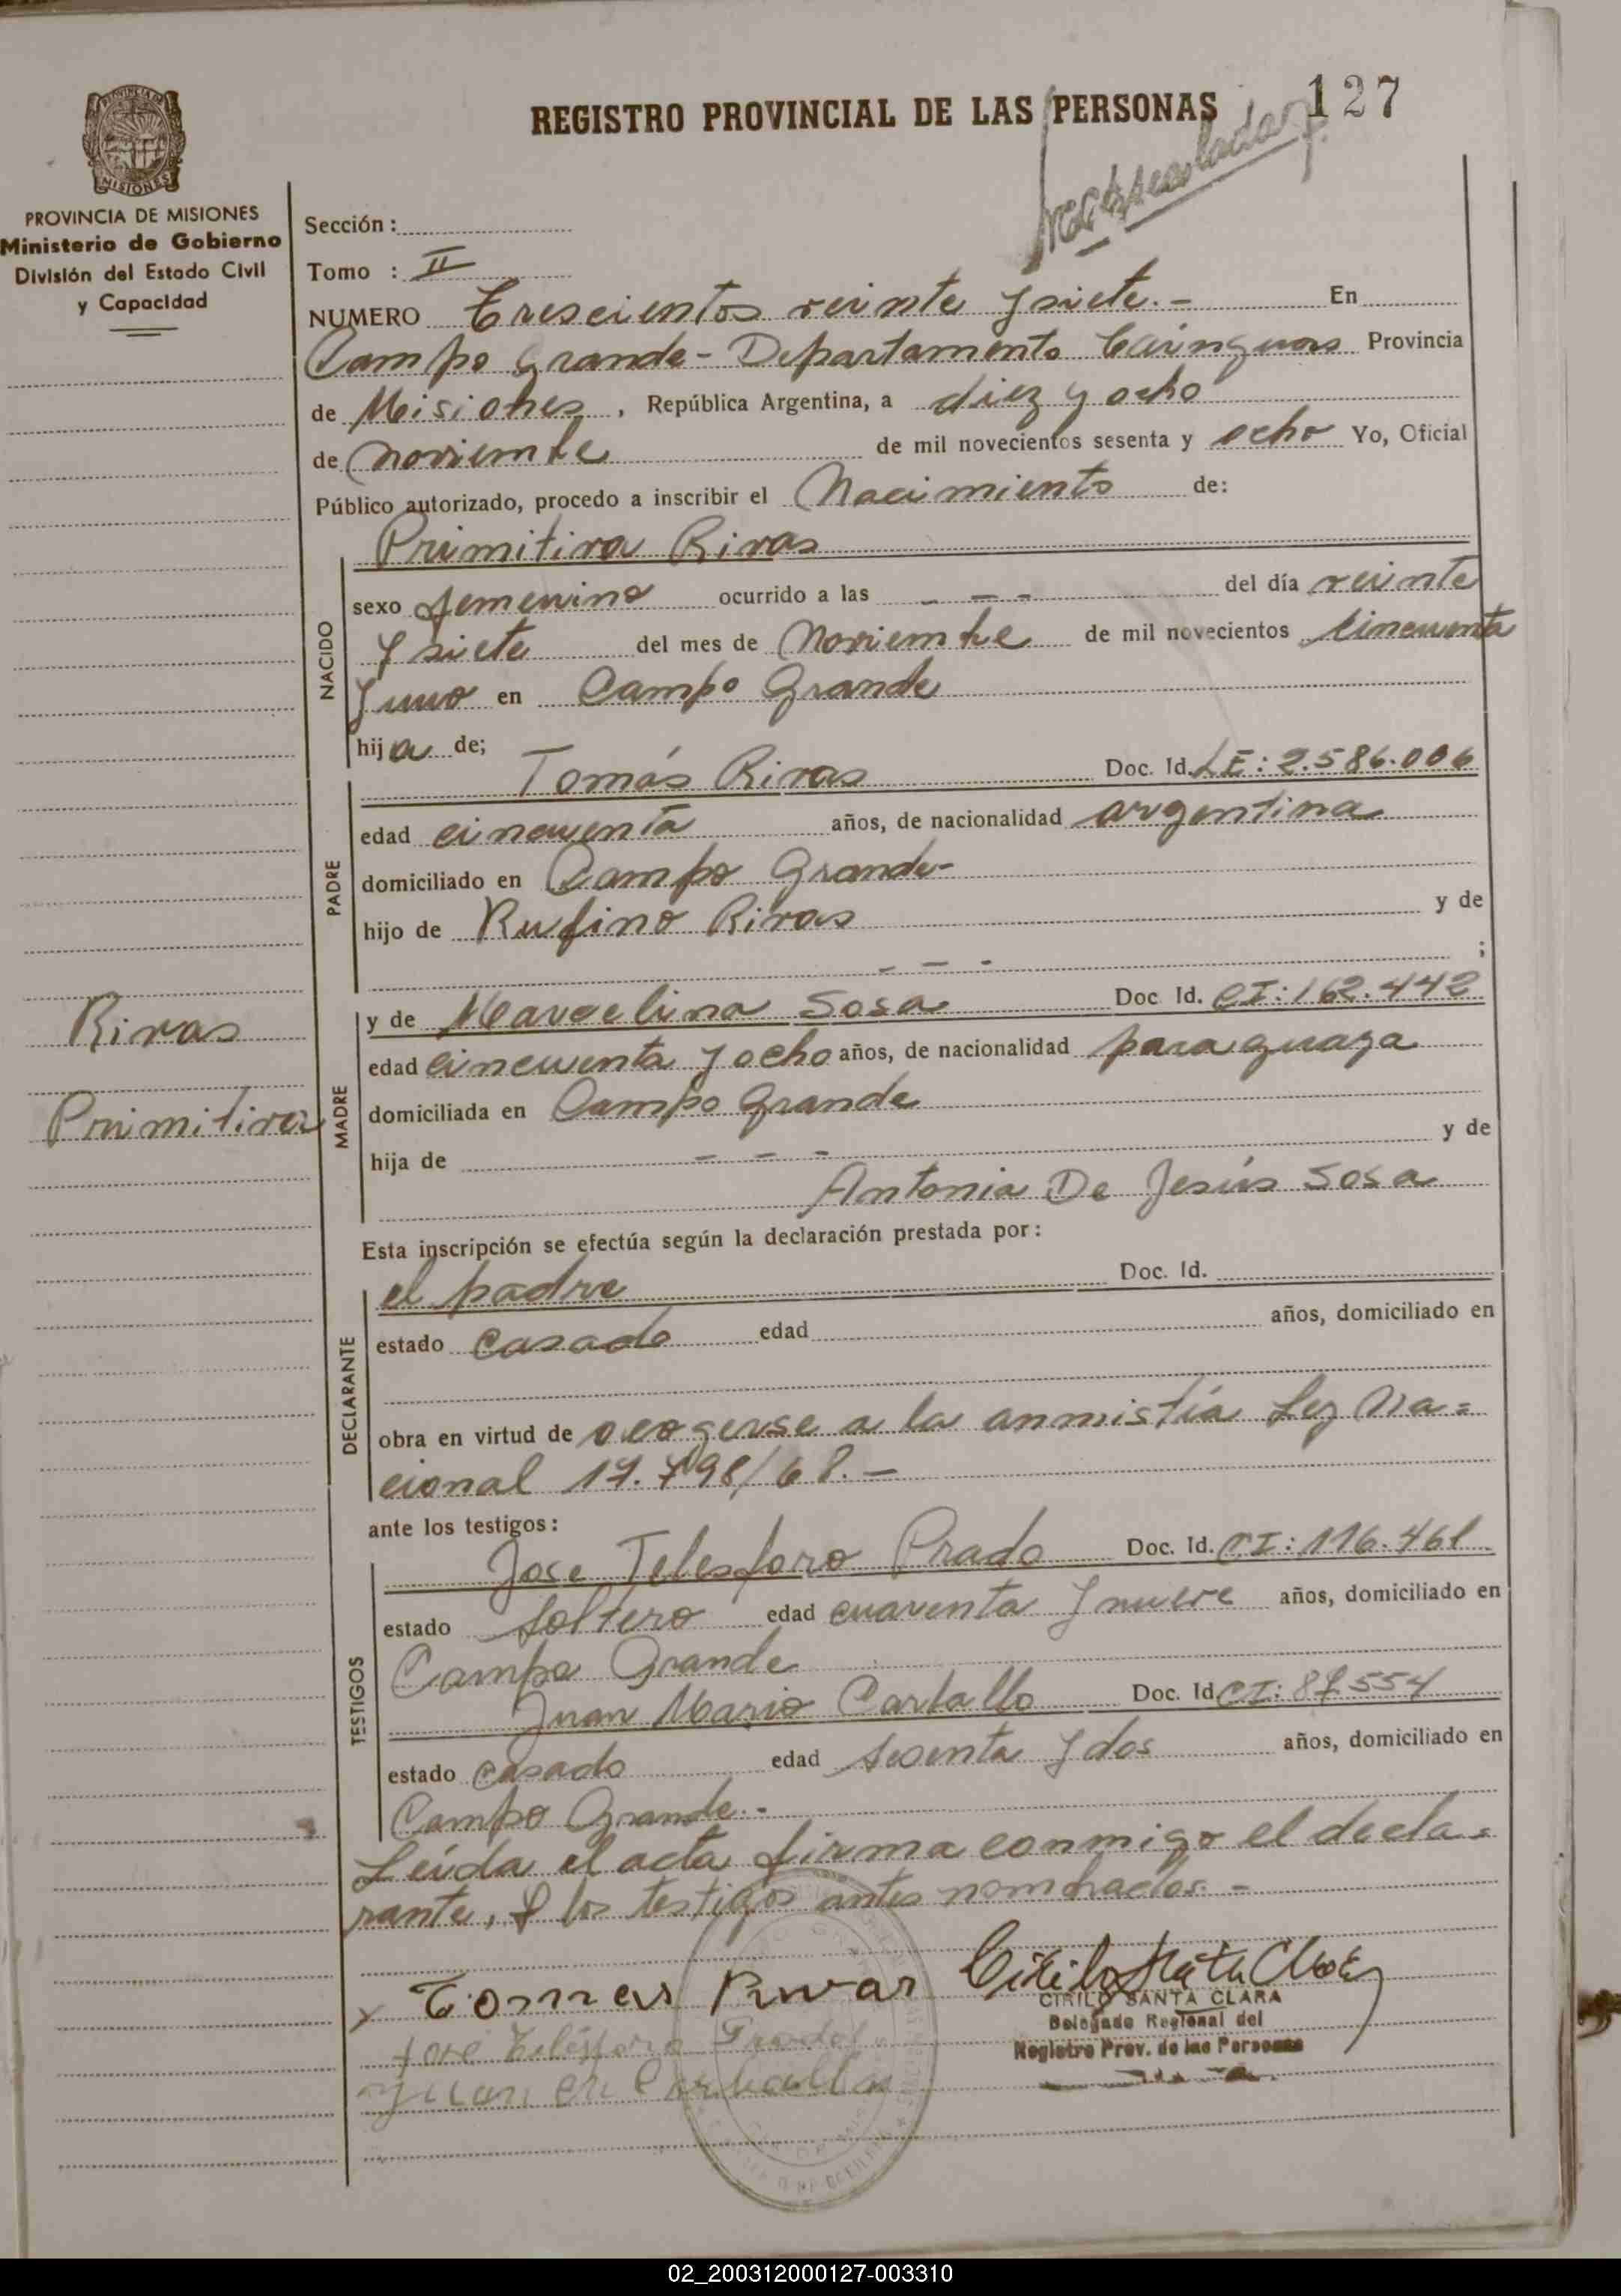 REGISTRO PROVINCIAL DE LAS PERSONAS 127
PROVINCIA DE MISIONES
MISIONES
PROVINCIA DE MISIONES
Ministerio de Gobierno
División del Estado Civil
y Capacidad
Sección:
Tomo : II
NUMERO Trescientos veinte y siete.- En
Campo Grande - Departamento Cainguas Provincia
de Misiones, República Argentina, a diez y ocho
de noviembre de mil novecientos sesenta y ocho Yo, Oficial
Público autorizado, procedo a inscribir el Nacimiento de:
Primitiva Rivas
NACIDO
sexo femenino ocurrido a las - - - del día veinte
y siete del mes de Noviembre de mil novecientos cincuenta
y uno en Campo Grande
hija de;
PADRE
Tomás Rivas Doc. Id. LE: 2.586.006
edad cincuenta años, de nacionalidad argentina
domiciliado en Campo Grande-
hijo de Rufino Rivas y de
- - - ;
Rivas
Primitiva
MADRE
y de Marcelina Sosa Doc Id. CI: 162.442
edad cincuenta y ocho años, de nacionalidad paraguaya
domiciliada en Campo Grande
hija de - - - y de
Antonia De Jesús Sosa
Esta inscripción se efectúa según la declaración prestada por:
DECLARANTE
el padre Doc. Id.
estado casado edad años, domiciliado en
obra en virtud de acogerse a la anmistía Ley Na=
cional 17.798/68.-
ante los testigos:
TESTIGOS
Jose Telesforo Prado Doc. Id. CI: 116.461
estado soltero edad cuarenta y nueve años, domiciliado en
Campo Grande
Juan Mario Carballo Doc. Id CI: 87.554
estado casado edad sesenta y dos años, domiciliado en
Campo Grande.-
Leída el acta firma conmigo el decla=
rante, y los testigos antes nombrados.-
x Tomas Rivas
CIRILO SANTA CLARA
Delegado Regional del
Registro Prov. de las Personas
José Telésforo Prado
Juan M Carballo
02_200312000127-003310